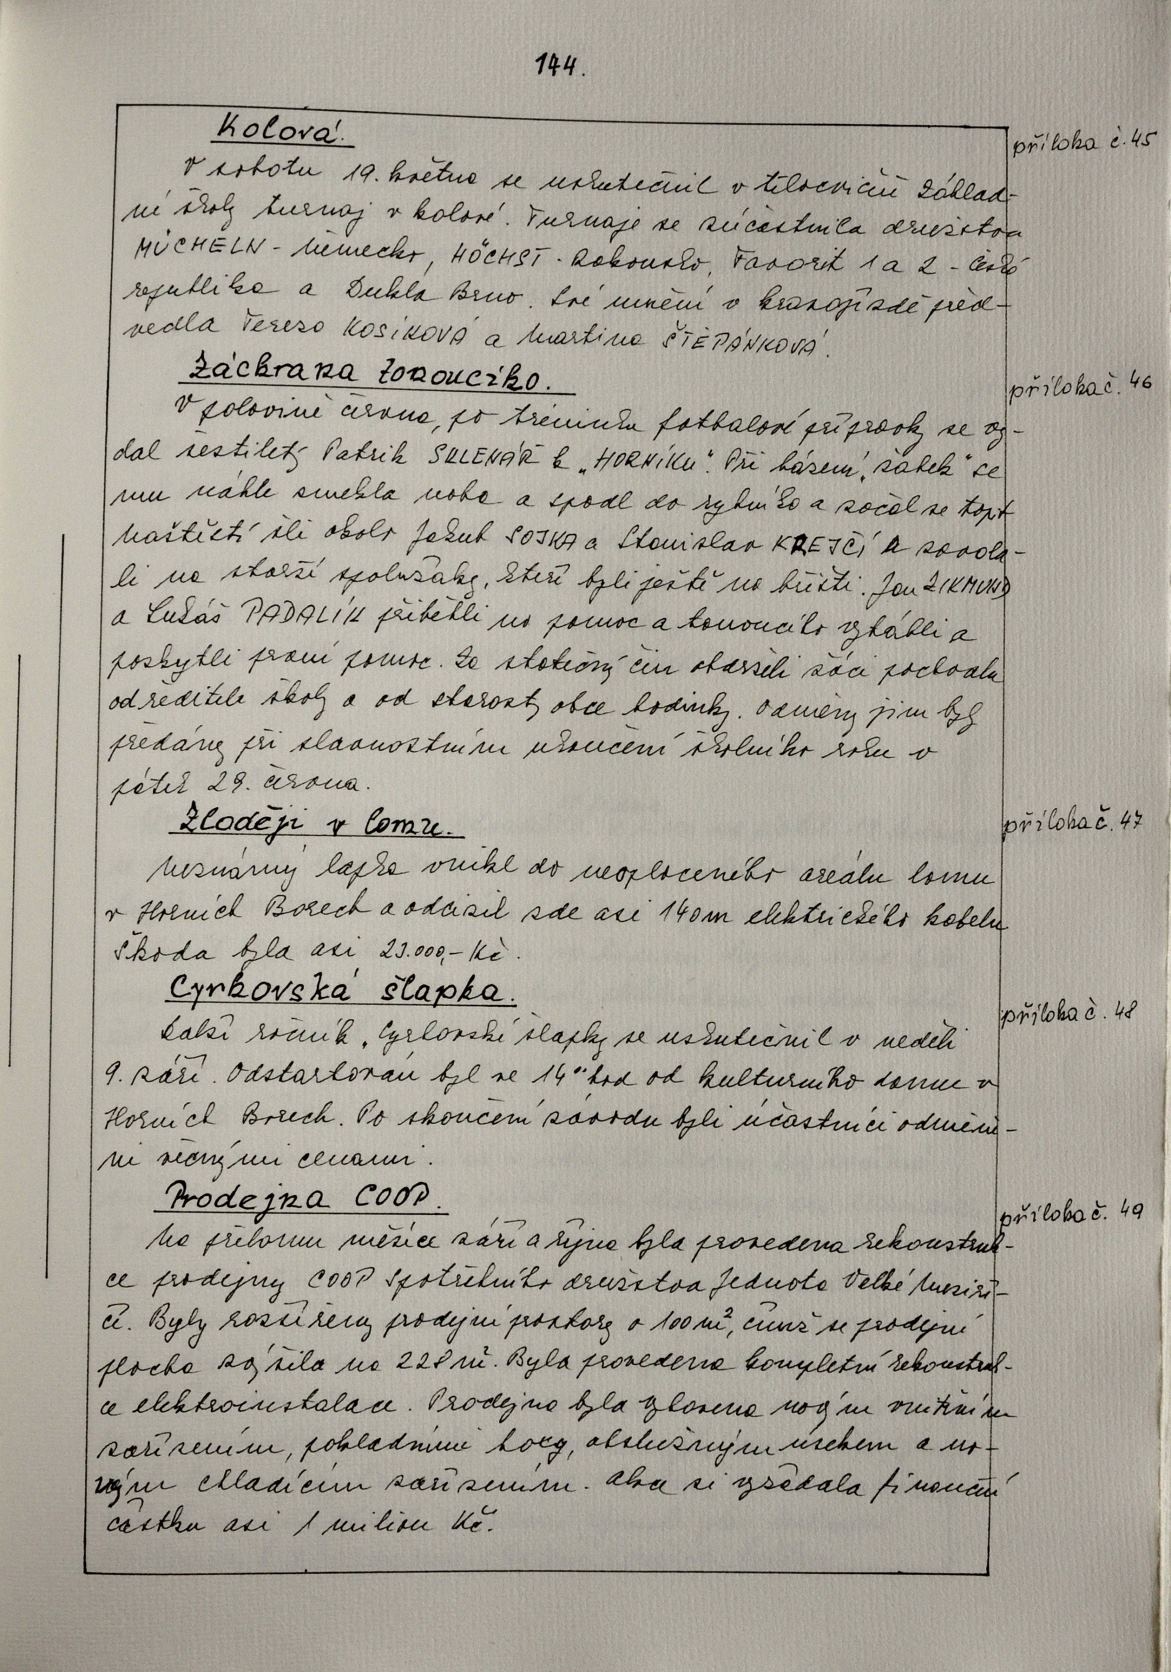 144.
Kolová.
příloha č. 45
V sobotu 19. května se uskutečnil v tělocvičně základ-
ní školy turnaj v kolové. Turnaje se zúčastnila družstva
MÜCHELN - Německo, HÖCHST - Rakousko, Favorit 1 a 2 - česká
republika a Dukla Brno. Své umění v krasojízdě před-
vedla Tereza KOSÍKOVÁ a Martina ŠTĚPÁNKOVÁ.
Záchrana tonoucího.
příloha č. 46
V polovině června, po tréninku fotbalové přípravky se vy-
dal šestiletý Patrik SKLENÁŘ k „HORNÍKU". Při házení „žabek" se
mu náhle smekla noha a spadl do rybníka a začal se topit
Naštěstí šli okolo Jakub SOJKA a Stanislav KREJČÍ a zavola-
li na starší spolužáky, kteří byli ještě na hřišti. Jan ZIKMUND
a Lukáš PADALÍK přiběhli na pomoc a tonoucího vytáhli a
poskytli první pomoc. Za statečný čin obdrželi žáci pochvalu
od ředitele školy a od starosty obce hodinky. Odměny jim byly
předány při slavnostním ukončení školního roku v
pátek 29. června.
Zloději v lomu.
příloha č. 47
Neznámý lapka vnikl do neoploceného areálu lomu
v Horních Borech a odcizil zde asi 140m elektrického kabelu
Škoda byla asi 23.000,- Kč.
Cyrhovská šlapka.
příloha č. 48
Další ročník „Cyrhovské šlapky se uskutečnil v neděli
9. září. Odstartován byl ve 14⁰⁰ hod od kulturního domu v
Horních Borech. Po skončení závodu byli účastníci odměně-
ni věcnými cenami.
Prodejna COOP.
příloha č. 49
Na přelomu měsíce září a října byla provedena rekonstruk-
ce prodejny COOP Spotřebního družstva Jednota Velké Meziří-
čí. Byly rozšířeny prodejní prostory o 100 m², čímž se prodejní
plocha zvýšila na 228 m². Byla provedena kompletní rekonstruk-
ce elektroinstalace. Prodejna byla vybavena novým vnitřním
zařízením, pokladními boxy, obslužným úsekem a no-
vým chladícím zařízením. Akce si vyžádala finanční
částku asi 1 milion Kč.